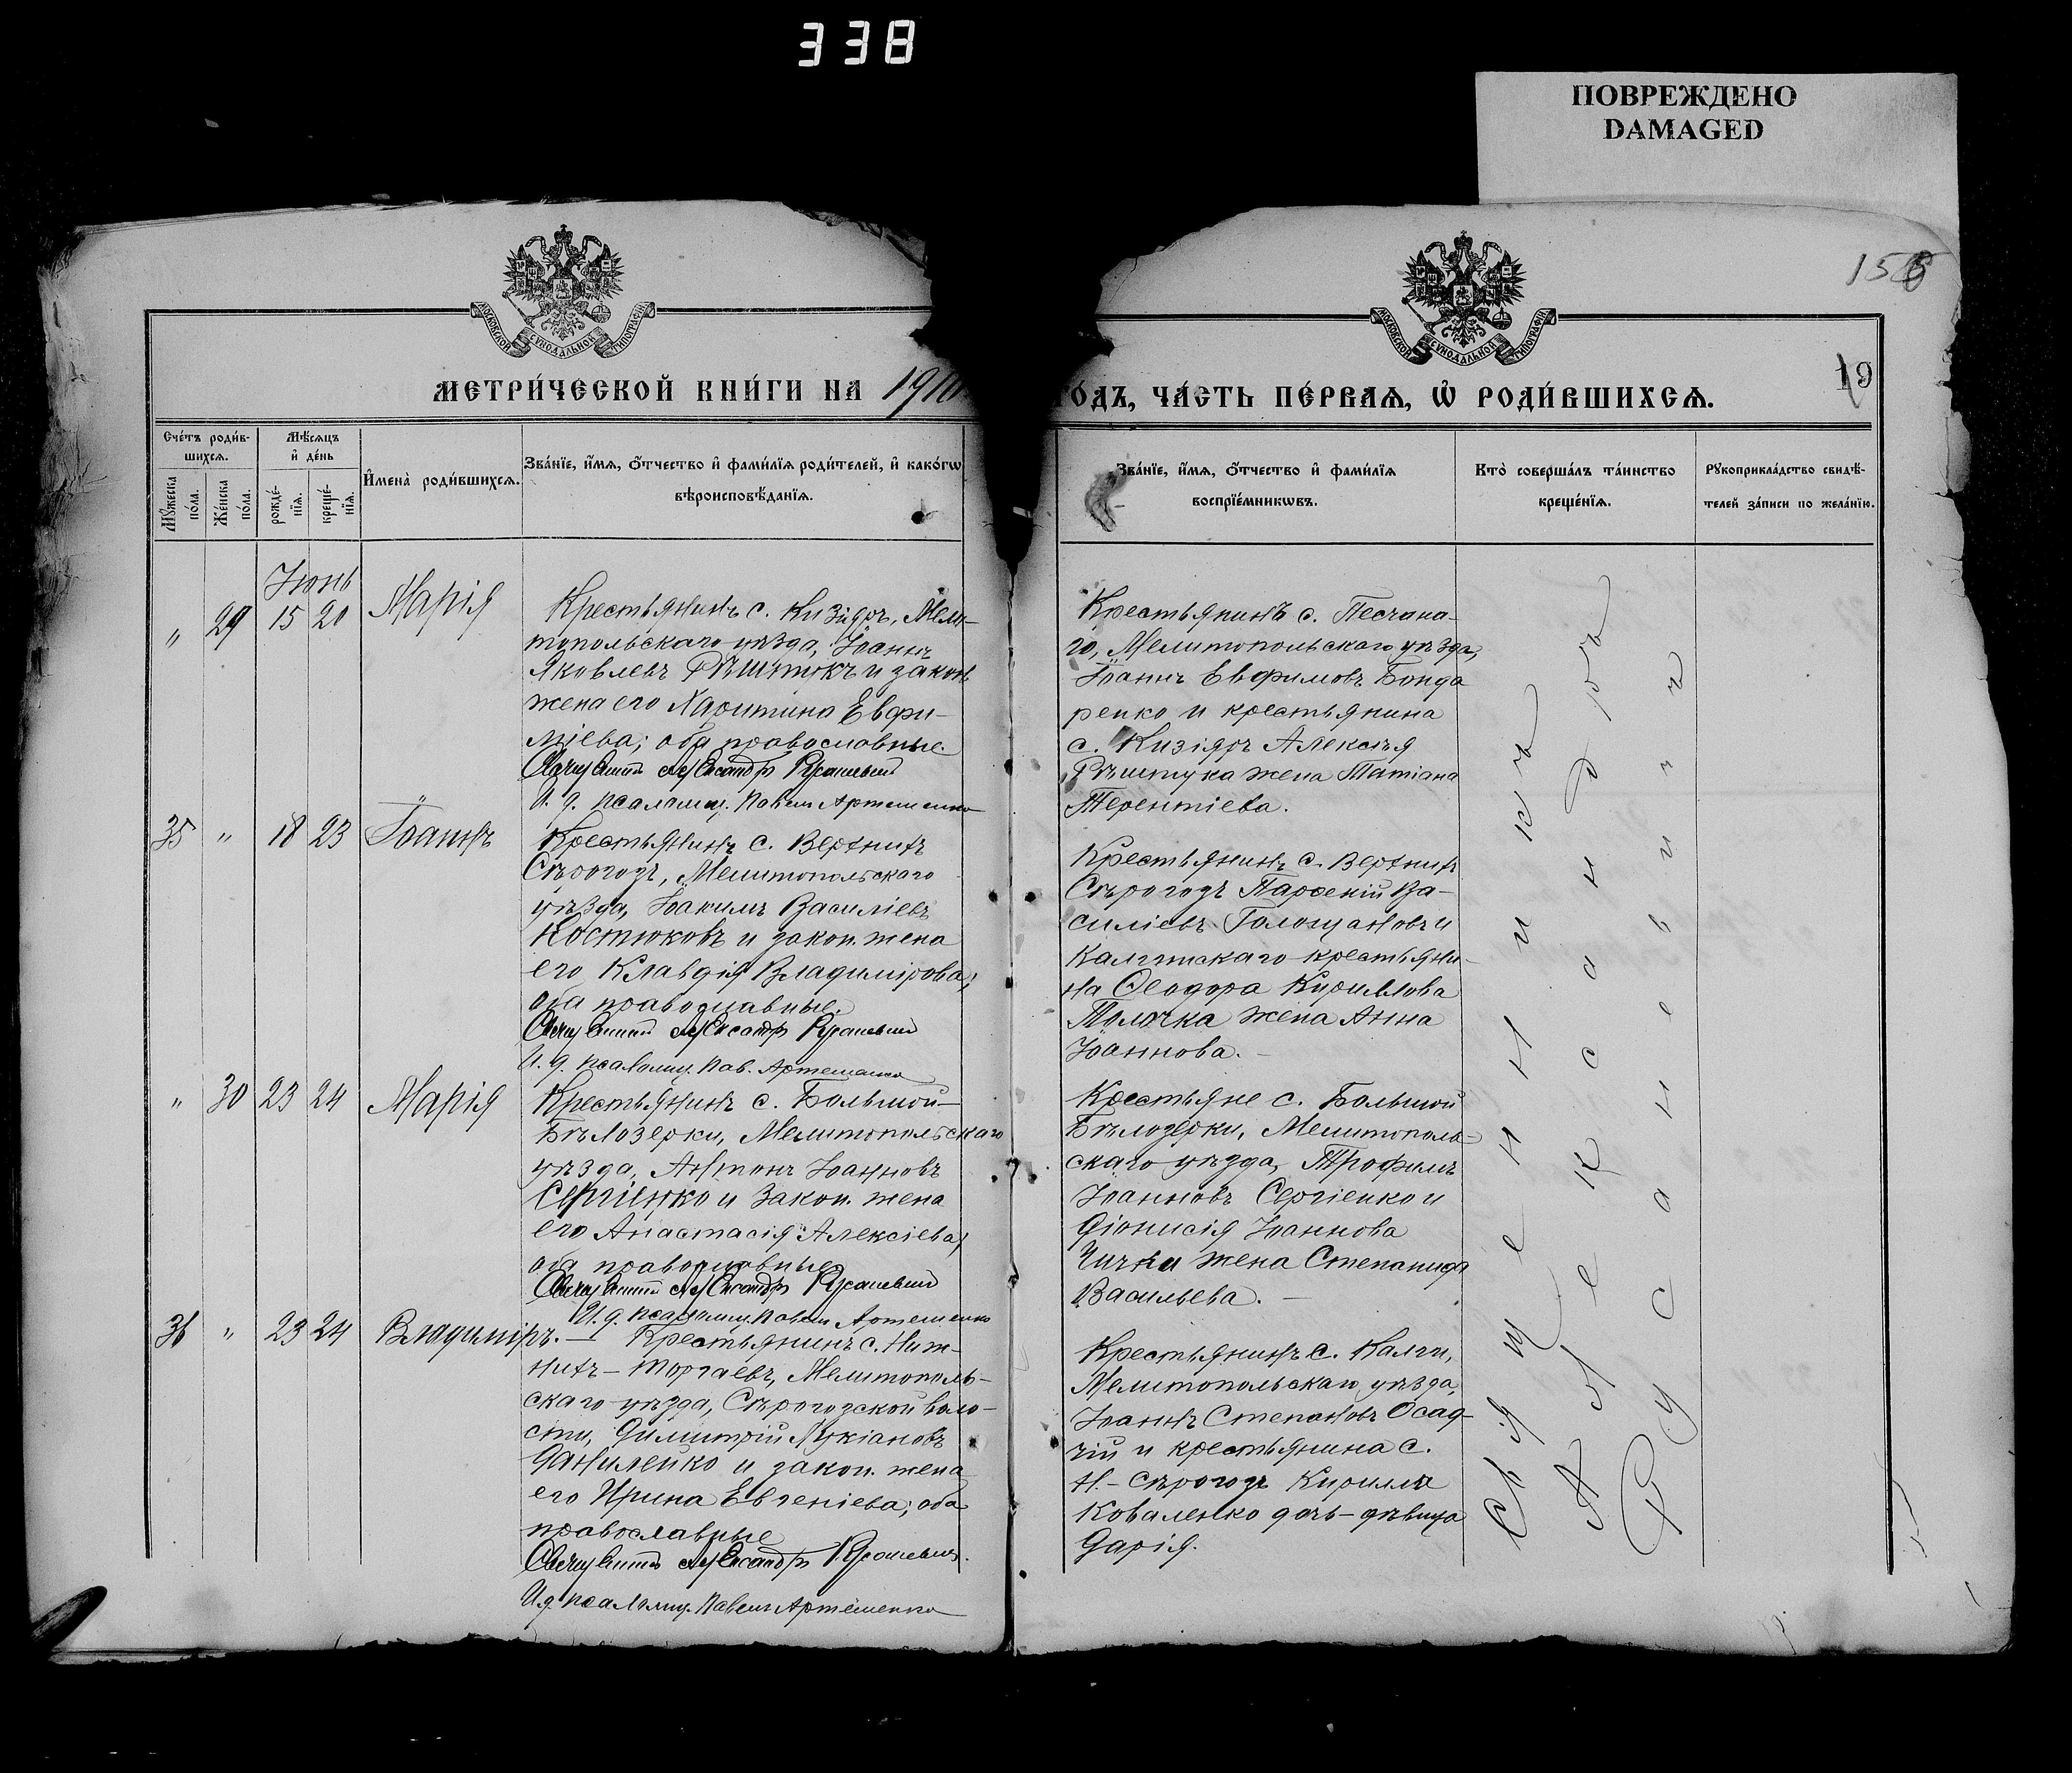 338
ПОВРЕЖДЕНО
DAMAGED
МОСКОВСКОЙ СѴНОДАЛЬНОЙ ТИПОГРАФІИ
МОСКОВСКОЙ СѴНОДАЛЬНОЙ ТИПОГРАФІИ
19
МЕТРИ́ЧЕСКОЙ КНИ́ГИ НА 1910
ГО́ДЪ, ЧА́СТЬ ПЕ́РВАЯ, Ѽ РОДИ́ВШИХСЯ.
Сче́тъ роди́в-
шихся.
Мѣ́сяцъ
и҆ де́нь
Мꙋ́жеска
по́ла.
Же́нска
по́ла.
рожде́-
нїя.
креще́-
нїя.
И҆мена̀ роди́вшихся.
Зва́нїе, и҆́мя, ѻ҆́тчество и҆ фами́лїя роди́телей, и҆ како́гѡ
вѣроисповѣ́данїя.
Зва́нїе, и҆́мя, ѻ҆́тчество и҆ фами́лїя
воспрїе́мникѡвъ.
Кто̀ соверша́лъ та́инство
креще́нїя.
Рꙋкоприкла́дство свидѣ́-
телей за́писи по жела́нїю.
Іюнь
" 29 15 20 Марія
Крестьянинъ с. Кизіяръ, Мели-
топольскаго уѣзда, Іоаннъ
Яковлевъ Рѣштукъ и закон.
жена его Харитина Евфи-
міева; оба православные.
Священник Александръ
И. д. псаломщ. Павелъ Артеменко
Крестьянинъ с. Песчана-
го, Мелитопольскаго уѣзда,
Іоаннъ Евфимовъ Бонда
ренко и крестьянина
с. Кизіяръ Алексѣя
Рѣштука жена Татіана
Терентіева.
35 " 18 23 Іоаннъ
Крестьянинъ с. Верхнихъ
Сѣрогозъ, Мелитопольскаго
уѣзда, Іоакимъ Василіевъ
Костюковъ и закон. жена
его Клавдія Владимірова;
оба православные.
Священник Александръ
И. д. псаломщ. Пав. Артеменко
Крестьянинъ с. Верхнихъ
Сѣрогозъ Парѳеній Ва-
силіевъ Голощаповъ и
Калгинскаго крестьяни-
на Ѳеодора Кириллова
жена Анна
Іоаннова. –
" 30 23 24 Марія
Крестьянинъ с. Большой-
Бѣлозерки, Мелитопольскаго
уѣзда, Антонъ Іоанновъ
Сергіенко и закон. жена
его Анастасія Алексіева;
оба православные.
Священник Александръ
И. д. псаломщ. Павелъ Артеменко
Крестьяне с. Большой
Бѣлозерки, Мелитополь-
скаго уѣзда, Трофимъ
Іоанновъ Сергіенко и
Діонисія Іоаннова
жена Степанида
Васильева. –
36 " 23 24 Владиміръ. –
Крестьянинъ с. Ниж-
нихъ-Торгаевъ, Мелитополь-
скаго уѣзда, Сѣрогозской воло-
сти, Димитрій Лукіановъ
Даниленко и закон. жена
его Ирина Евгеніева; оба
православные
Священник Александръ
И. д. псаломщ. Павелъ Артеменко
Крестьянинъ с. Калги,
Мелитопольскаго уѣзда,
Іоаннъ Степановъ Осад-
чій и крестьянина с.
Н.-Сѣрогозъ Кирилла
Коваленко дочь-дѣвица
Дарія.
Священникъ
Александръ